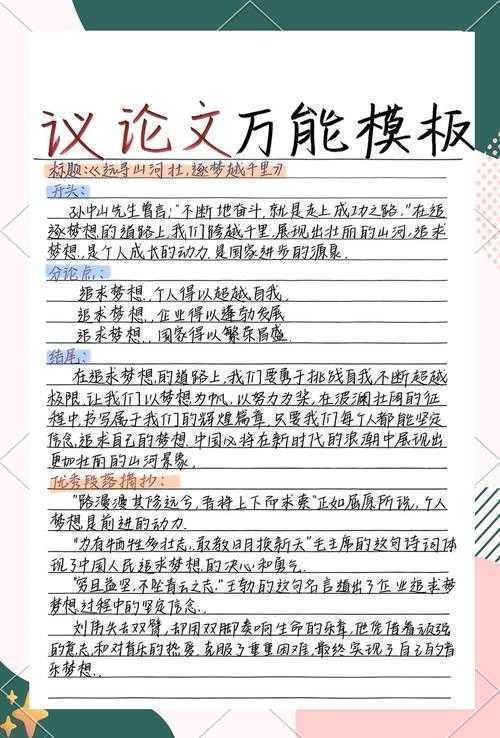 议论文万能模板
标题:《远寻山河壮,逐梦越千里》
开头:
孙中山先生曾言:"不断地奋斗,就是走上成功之路."在追
逐梦想的道路上,我们跨越千里,展现出壮丽的山河,追求
梦想,是个人成长的动力,是国家进步的源泉.
分论点:
追求梦想,个人得以超越自我.
追求梦想,企业得以蓬勃发展
追求梦想,国家得以繁荣昌盛.
结尾:
在追求梦想的道路上,我们要勇于挑战自我,不断超越
极限,让我们以梦想为帆,以努力为桨,在波澜壮阔的征
程中,书写属于我们的辉煌篇章.只要我们每个人都能坚定
信念,追求自己的梦想,中国必将在新时代的浪潮中展现出
更加壮丽的山河景象.
优秀段落摘抄:
"路漫漫其修远兮,吾将上下而求索"正如屈原所说,个人
梦想是前进的动力.
"为有牺牲多壮志,敢教日月换新天"毛主席的这句诗词体
现了中国人民追求梦想的决心和勇气.
"穷且益坚,不坠青云之志."王勃的这句名言道出了企业追梦
梦想过程中的坚定信念.
刘伟失去双臂,却用双脚奏响生命的乐章,他凭借着顽强
的意志和对音乐的热爱,克服了重重困难,最终实现了自己的音
乐梦想.